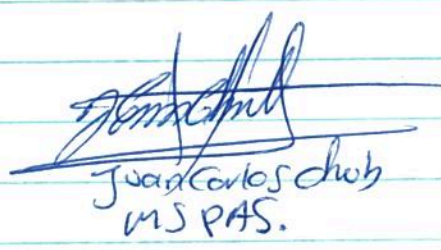 Juan Carlos Chub
MSPAS.